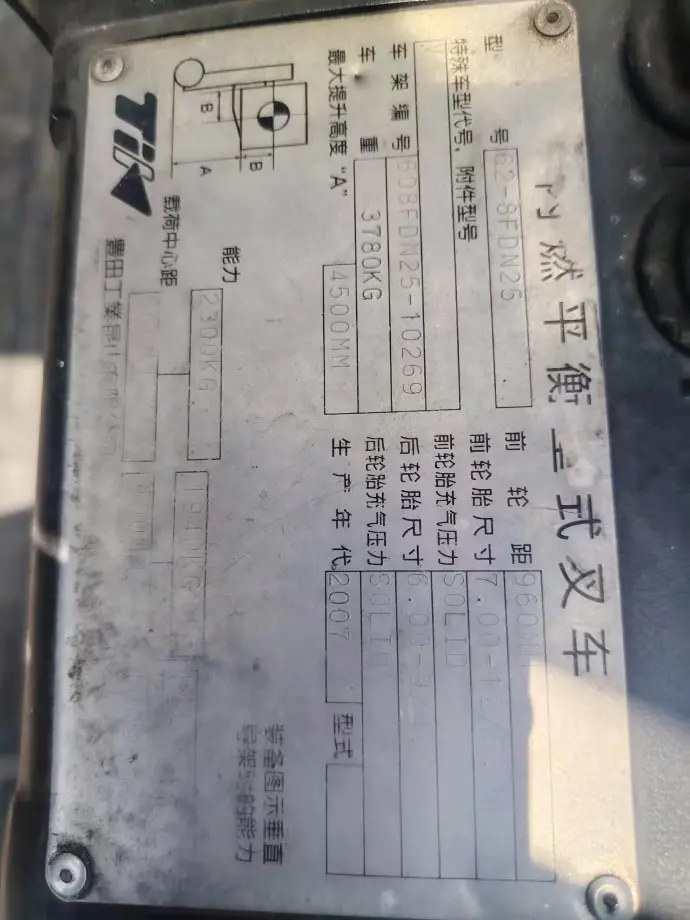 内燃平衡重式叉车
型号 62-8FDN25
特殊车型代号,附件型号
车架编号 608FDN25-10269
车重 3780KG
最大提升高度 "A" 4500MM
前轮距 960MM
前轮胎尺寸 7.00-12
前轮胎充气压力 SOLID
后轮胎尺寸 6.00-9
后轮胎充气压力 SOLID
生产年代 2007 型式
B
B
A
能力 2300KG
载荷中心距
豊田工業昆山
装备图示垂直
的能力